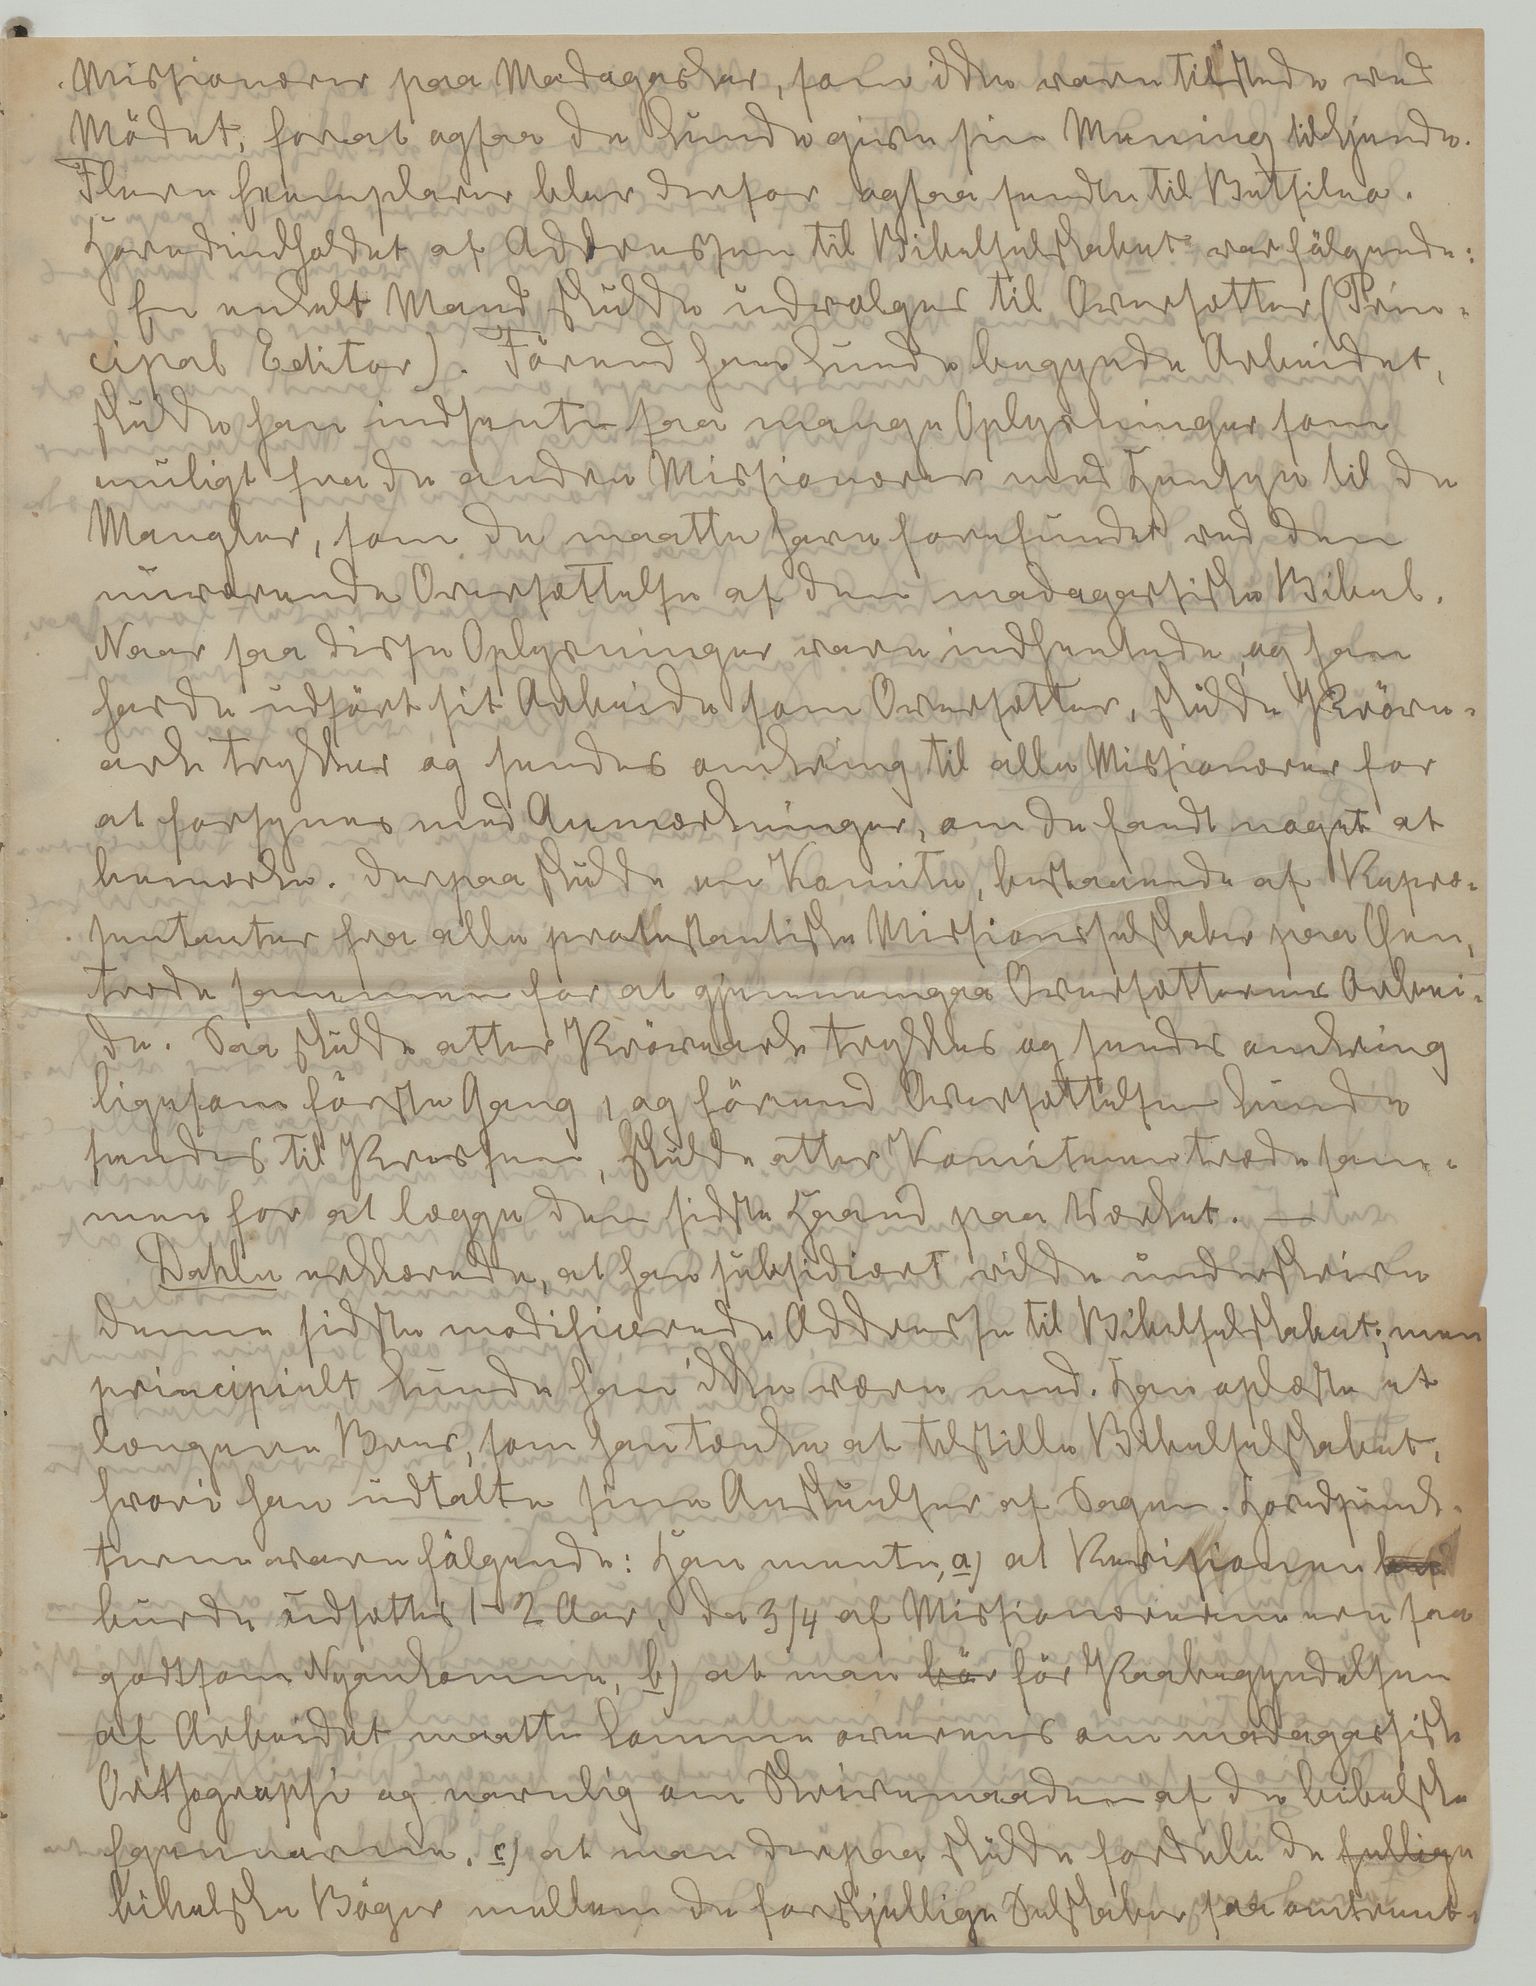 Missionærer paa Madagaskar, som ikke vare tilstede ved
Mödet, forat ogsaa de kunde give sin Mening tilkjende.
Flere Exemplarer blev derfor ogsaa sendte til Betsileo.
Hovedindholdet af Addressen til Bibelselskabet var fölgende:
En enkelt Mand skulde udvælges til Oversætter (Prin-
cipal Editor). Förend han kunde begynde Arbeidet,
skulde han indhente saa mange Oplysninger som
muligt fra de andre Missionærer med Hensyn til de
Mangler, som de maatte have forefundet ved den
nuværende Oversættelse af den madagassiske Bibel.
Naar saa disse Oplysninger vare indhentede, og han
havde udfört sit Arbeide som Oversætter, skulde Pröve-
ark trykkes og sendes omkring til alle Missionærer for
at forsynes med Anmærkninger, om de fandt noget at
bemærke. Derpaa skulde en Komite, bestaaende af Repræ-
sentanter fra alle protestantiske Missionsselskaber paa Øen,
træde sammen for at gjennemgaa Oversætterens Arbei-
de. Saa skulde atter Pröveark trykkes og sendes omkring
ligesom förste Gang, og förend Oversættelsen kunde
sendes til Pressen, skulde atter Komiteen træde sam-
men for at lægge den sidste Haand paa Værket. —
Dahle erklærede, at han subsidiært vilde underskrive
denne sidste modificerede Addresse til Bibelselskabet; men
principielt kunde han ikke være med. Han oplæste et
længere Brev, som han tænkte at tilstille Bibelselskabet,
hvori han udtalte sine Anskuelser af Sagen. Hovedpunk-
terne vare fölgende: Han mente, a) at Revisionen
burde udsættes 1-2 Aar, da 3/4 af Missionærerne ere saa
godtsom Nyankomne, b) at man bör för Paabegyndelsen
af Arbeidet maatte komme overens om madagassisk
Orthographi og navnlig om Skrivemaaden af de bibelske
Egennavne, c) at man derpaa skulde fordele de hellige
bibelske Böger mellem de forskjellige Selskaber saa omtrent-